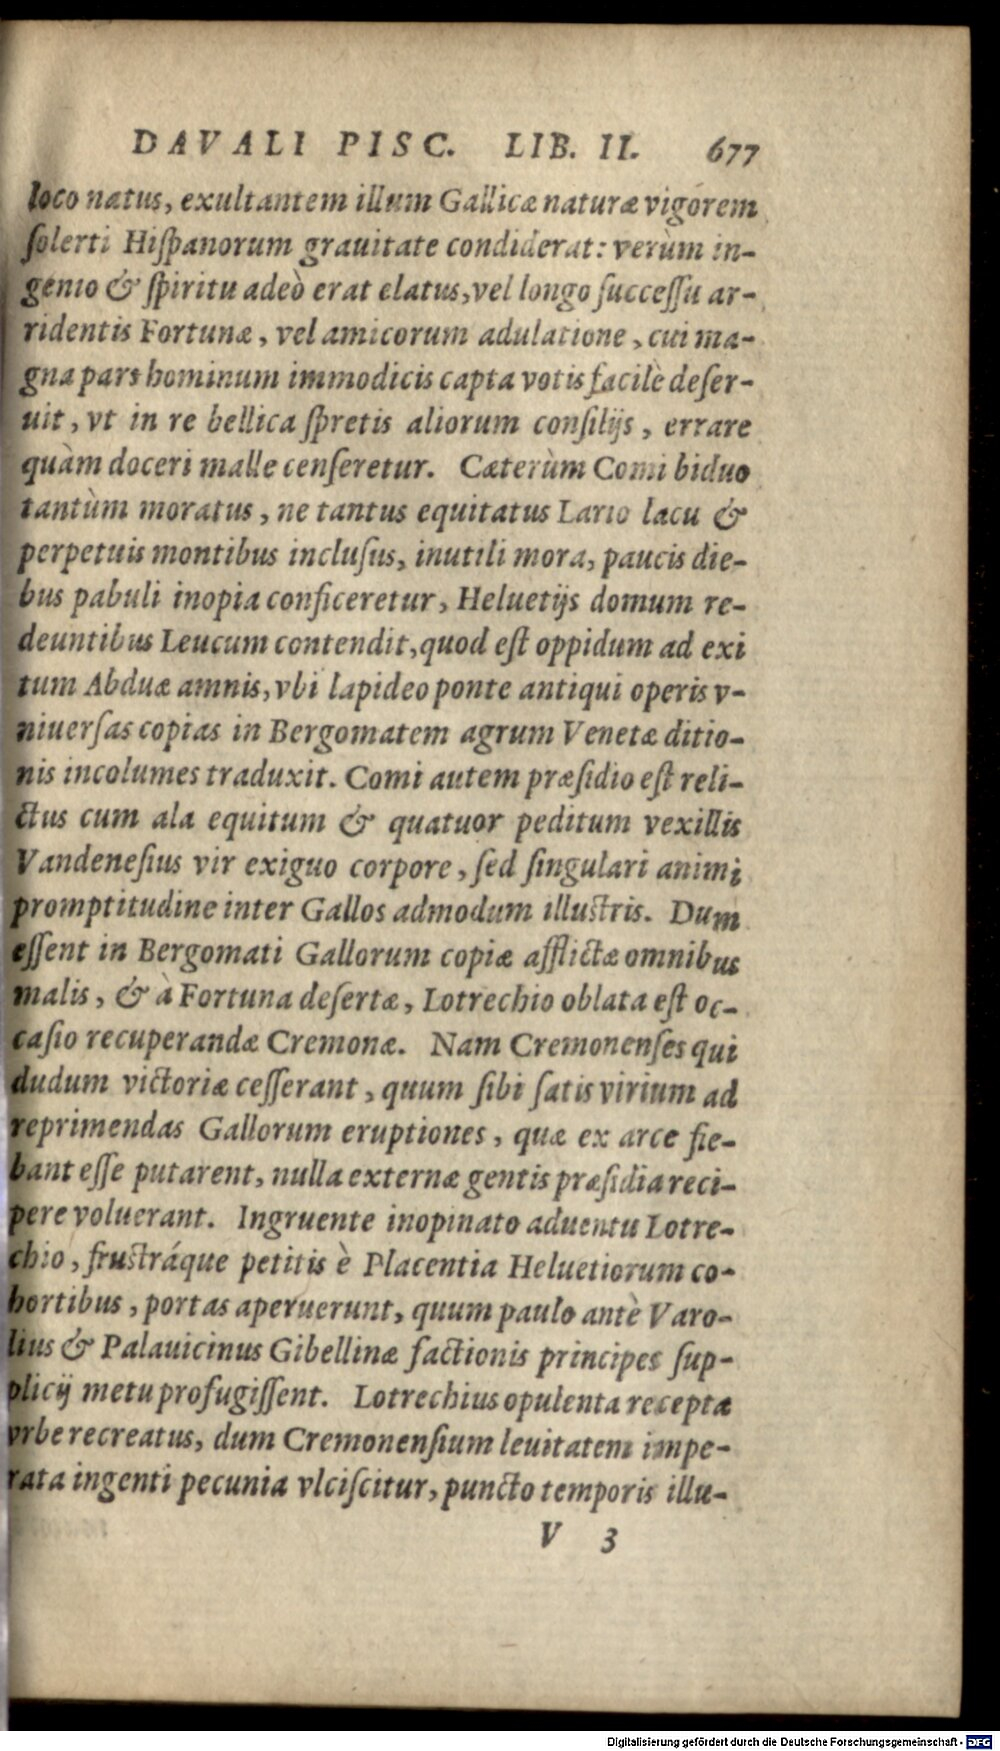 DAVALI PISC. LIB. II. 677
loco natus, exultantem illum Gallicæ naturæ vigórem
ſolerti Hiſpanorum grauitate condiderat: verùm in-
genio & ſpiritu adeò erat elatus, vel longo ſucceſſu ar-
ridentis Fortunæ, vel amicorum adulatione, cui ma-
gna pars hominum immodicis capta votis facilè deſer-
uit, vt in re bellica ſpretis aliorum conſilijs, errare
quàm doceri malle cenſeretur. Cæterùm Comi biduo
tantùm moratus, ne tantus equitatus Lario lacu &
perpetuis montibus incluſus, inutili mora, paucis die-
bus pabuli inopia conficeretur, Heluetijs domum re-
deuntibus Leucum contendit, quod eſt oppidum ad exi
tum Abduæ amnis, vbi lapideo ponte antiqui operis v-
niuerſas copias in Bergomatem agrum Venetæ ditio-
nis incolumes traduxit. Comi autem præſidio eſt reli-
ctus cum ala equitum & quatuor peditum vexillis
Vandeneſius vir exiguo corpore, ſed ſingulari animi
promptitudine inter Gallos admodum illuſtris. Dum
eſſent in Bergomati Gallorum copiæ afflictæ omnibus
malis, & à Fortuna deſertæ, Lotrechio oblata eſt oc-
caſio recuperandæ Cremonæ. Nam Cremonenſes qui
dudum victoriæ ceſſerant, quum ſibi ſatis virium ad
reprimendas Gallorum eruptiones, quæ ex arce fie-
bant eſſe putarent, nulla externæ gentis præſidia reci-
pere voluerant. Ingruente inopinato aduentu Lotre-
chio, fruſtráque petitis è Placentia Heluetiorum co-
hortibus, portas aperuerunt, quum paulo antè Varo-
lius & Palauicinus Gibellinæ factionis principes ſup-
plicij metu profugiſſent. Lotrechius opulenta recepta
vrbe recreatus, dum Cremonenſium leuitatem impe-
rata ingenti pecunia vlciſcitur, puncto temporis illu-
V 3
Digitalisierung gefördert durch die Deutsche Forschungsgemeinschaft - DFG